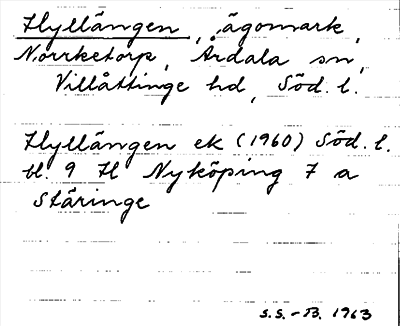 Hyllängen, ägomark,
Norrketorp, Årdala sn,
Villåttinge hd, Söd. l.
Hyllängen ek (1960) Söd. l.
bl. 9 H Nyköping 7 a
Stäringe
S.S.-B. 1963